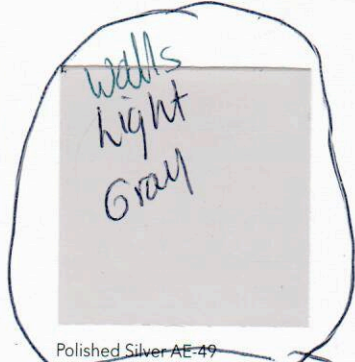 Walls
Light
Gray
Polished Silver AE-49